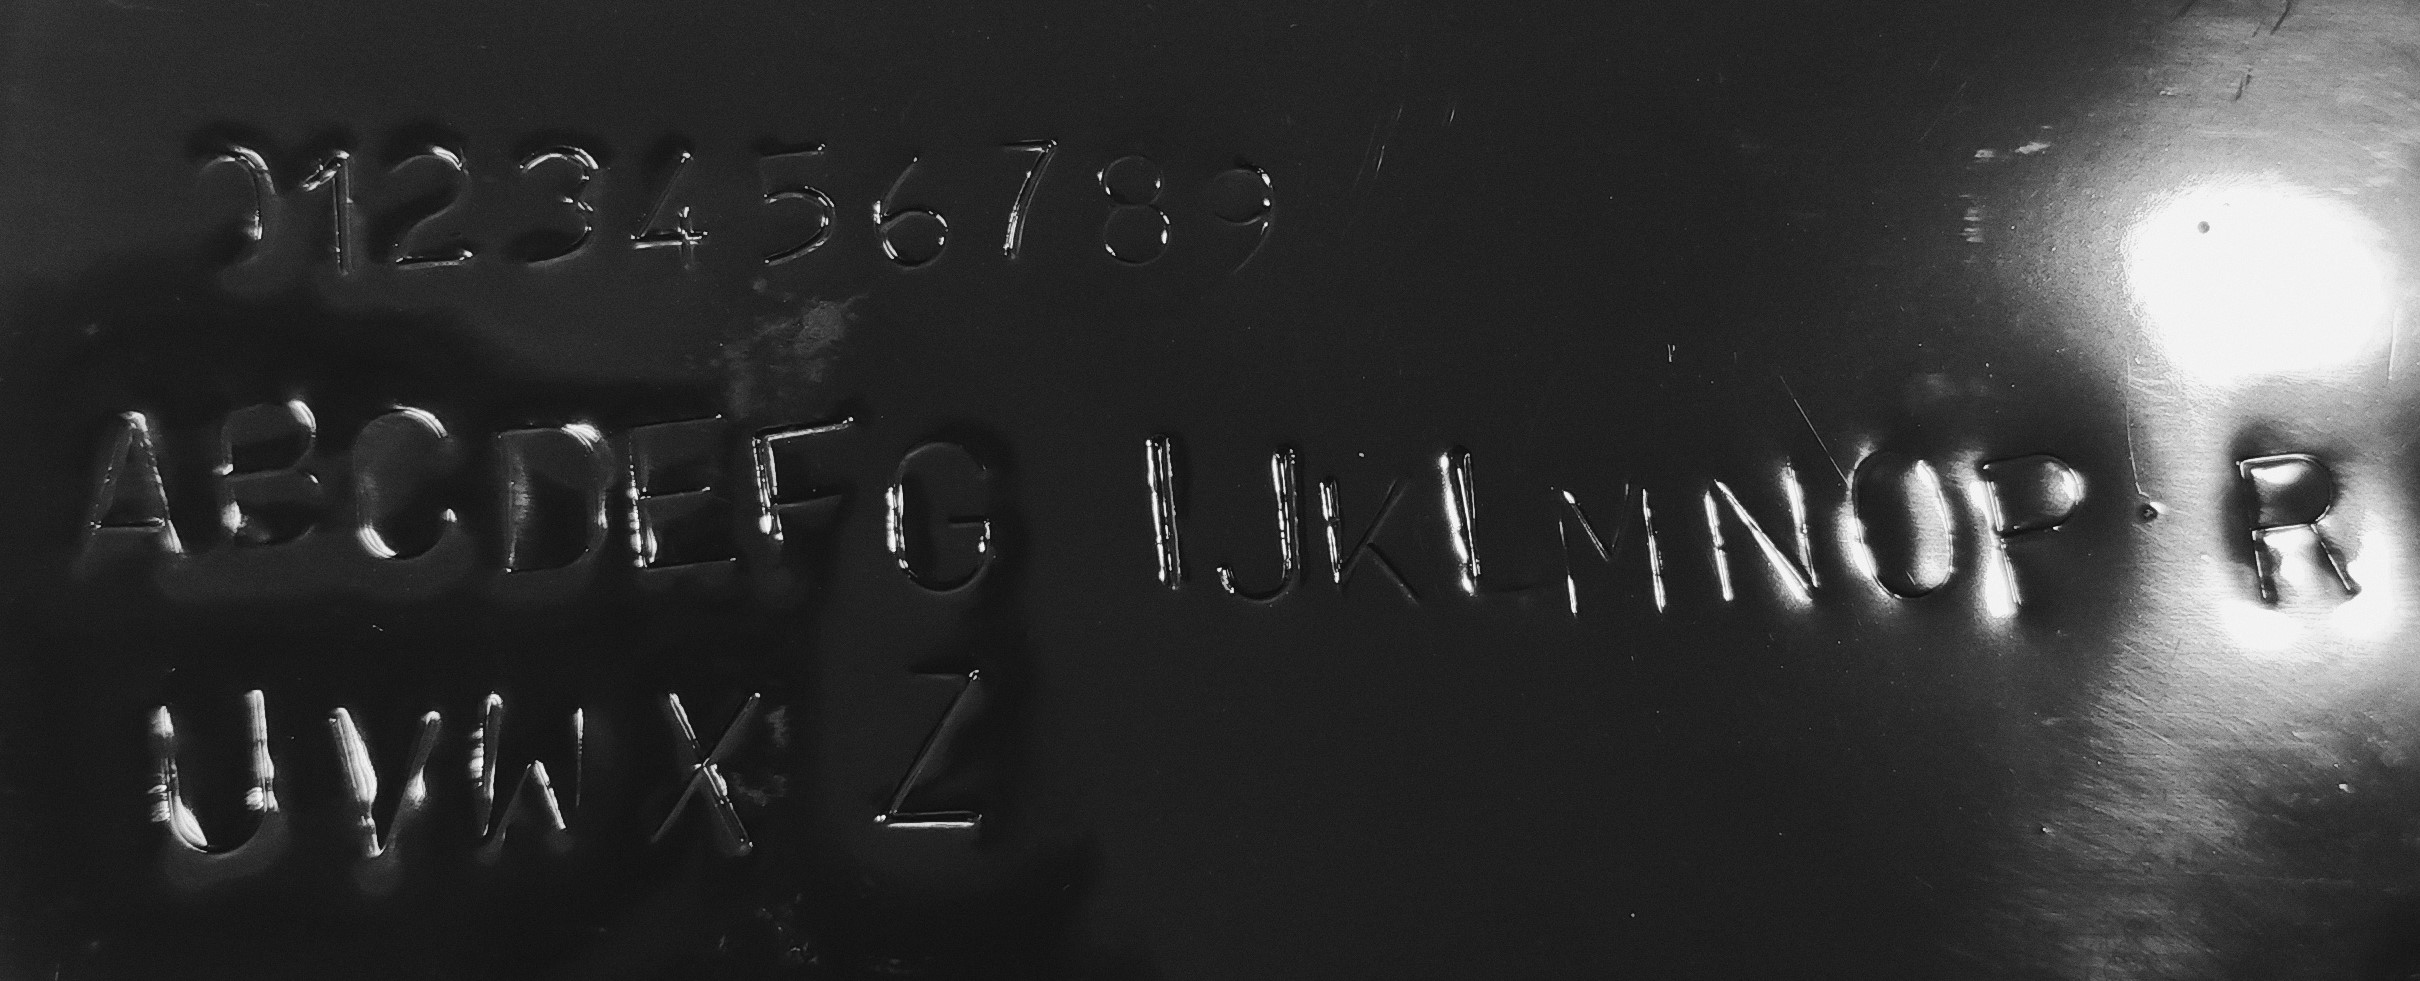 0123456789
ABCDEFG IJKLMNOP R
UVWX Z